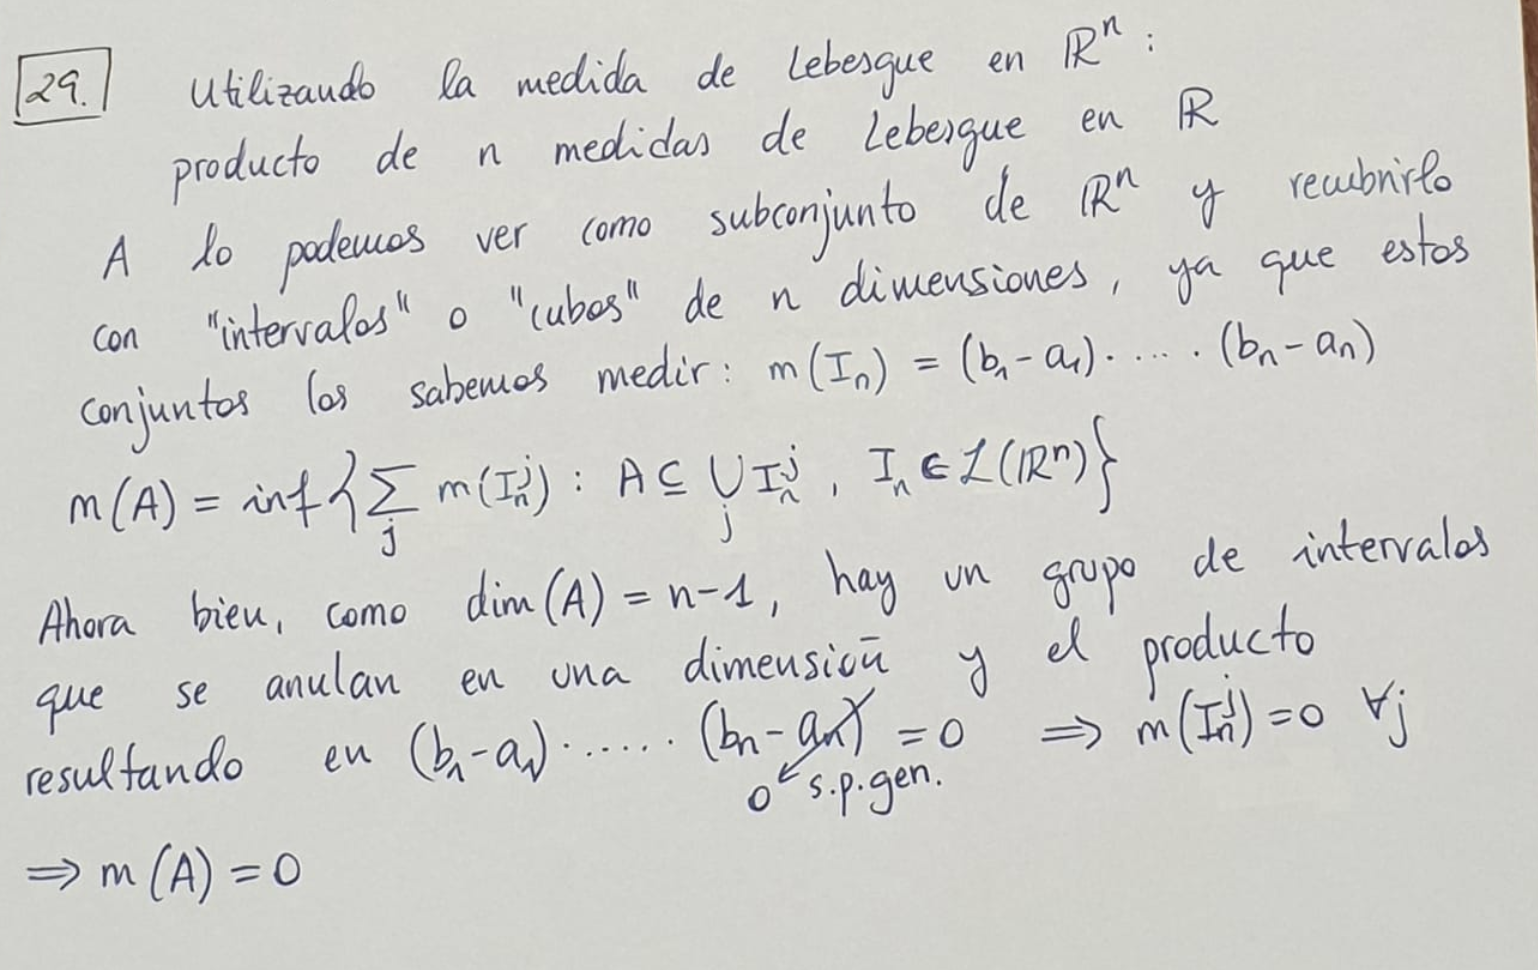 29. Utilizando la medida de Lebesgue en ℝⁿ:
producto de n medidas de Lebesgue en ℝ
A lo podemos ver como subconjunto de ℝⁿ y recubrirlo
con "intervalos" o "cubos" de n dimensiones, ya que estos
conjuntos los sabemos medir: m(Iₙ) = (b₁-a₁)·....·(bₙ-aₙ)
m(A) = inf{∑_j m(Iₙʲ) : A ⊆ ⋃_j Iₙʲ, Iₙ ∈ ℒ(ℝⁿ)}
Ahora bien, como dim(A) = n-1, hay un grupo de intervalos
que se anulan en una dimensión y el producto
resultando en (b₁-a₁)·.....·(bₙ-aₙ) = 0 ⟹ m(Iₙʲ) = 0 ∀j
0 s.p.gen.
⟹ m(A) = 0